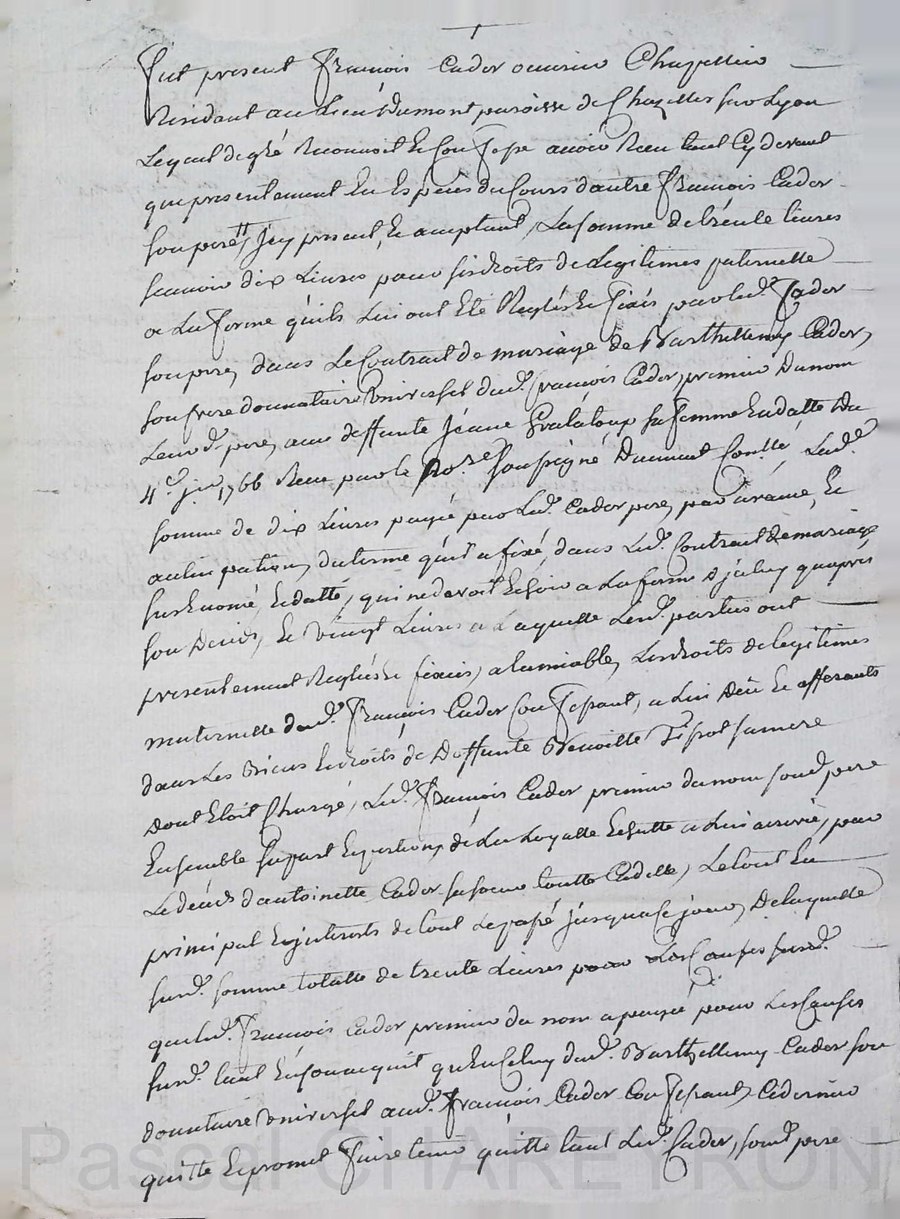 fut present françois Cador ouvrier Chapellier
Residant au Lieu dumont paroisse de Chazelles sur Lyon
Lequel de gré Reconnoit Et Confesse avoir Receu tant Cy devant
que presentement En Especes du Cours dautre françois Cador
son pere Icy present, Et acceptant, La somme de trente livres
scavoir dix Livres pour ses droits de Legitimes paternelle
a La forme quils Lui ont Eté Reglés Et fixés par led. Cador
son pere, dans Le Contrat de mariage de Barthellemy Cador,
son frere donnataire Universel dud. françois Cador, premier Dunom
Leur d. pere, avec deffunte Jeanne sa femme En datte Du
4e. 1766 Receu par le No.re soussigné Duement Con.lé, Lad.e
somme de dix Livres payée par Led. Cador pere, par avance, Et
anticipation, du terme quil a fixé, dans Led. Contrat de mariage
sus Enoncé, Et datté, qui ne devoit Echoir a La forme dycelluy quapres
son Deceds, Et vingt Livres a Laquelle Lesd. parties ont
presentement Reglés Et fixés, a lamiable, Les droits de legitimes
maternelle dud. françois Cador Confessant, a Lui Deüe Et afferants
dans Les Biens Et droits de Deffunte Benoitte sa mere
dont Etoit Chargé, Led. françois Cador premier du nom son d. pere
Ensemble sa part Et portion, de La Loyalle Echutte a Lui arrivée, par
Le deceds d'antoinette Cador sa soeur toutte Cadette, Le tout En
principal Et interets de tout Le passé jusqua Ce jour, De laquelle
susd. somme totalle de trente Livres pour Les Causes susd.
que led. françois Cador premier du nom a payée pour Les Causes
susd. tant En son acquit quen Celuy dud. Barthellemy Cador son
donnataire Universel aud. françois Cador Confessant, Ce dernier
quitte Et promet faire tenir quitte tant Led. Cador, son d. pere
Pascal CHAREYRON